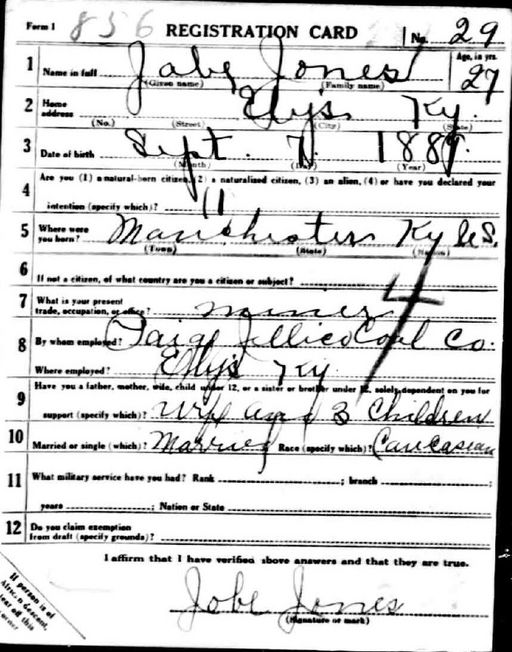 Form 1 856 REGISTRATION CARD No. 29
1 Name in full Jabe Jones Age, in yrs. 27
(Given name) (Family name)
2 Home address Elys Ky.
(No.) (Street) (City) (State)
3 Date of birth Sept. 7 1889
(Month) (Day) (Year)
4 Are you (1) a natural-born citizen, (2) a naturalized citizen, (3) an alien, (4) or have you declared your
intention (specify which)? 11
5 Where were you born? Manchester Ky U.S.
(Town) (State) (Nation)
6 If not a citizen, of what country are you a citizen or subject?
7 What is your present trade, occupation, or office? miner 4
8 By whom employed? Jellico Coal Co.
Where employed? Ellys Ky
9 Have you a father, mother, wife, child under 12, or a sister or brother under 12, solely dependent on you for
support (specify which)? Wife and 3 Children
10 Married or single (which)? Married Race (specify which)? Caucasian
11 What military service have you had? Rank ; branch ;
years ; Nation or State
12 Do you claim exemption from draft (specify grounds)?
I affirm that I have verified above answers and that they are true.
Jobe Jones
(Signature or mark)
If person is of
African descent,
tear off this
corner